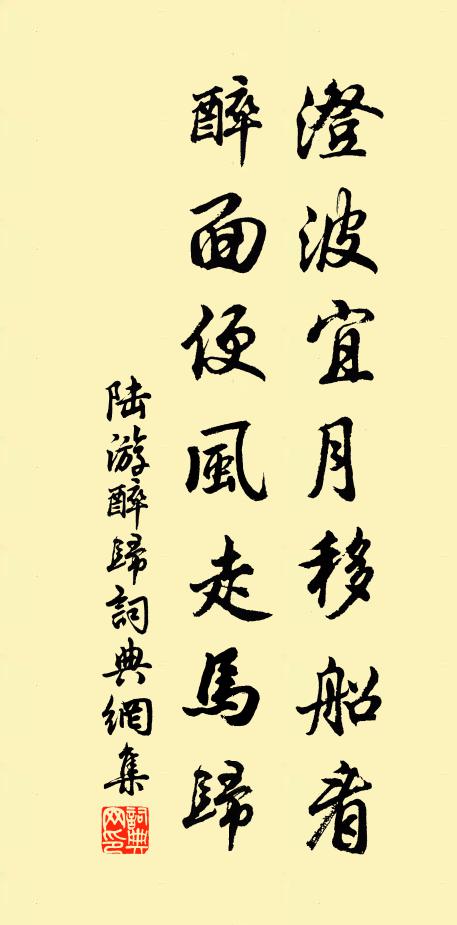 澄波宜月移船看
醉面便風走馬歸
陸游醉歸詞典網集
詞典網印